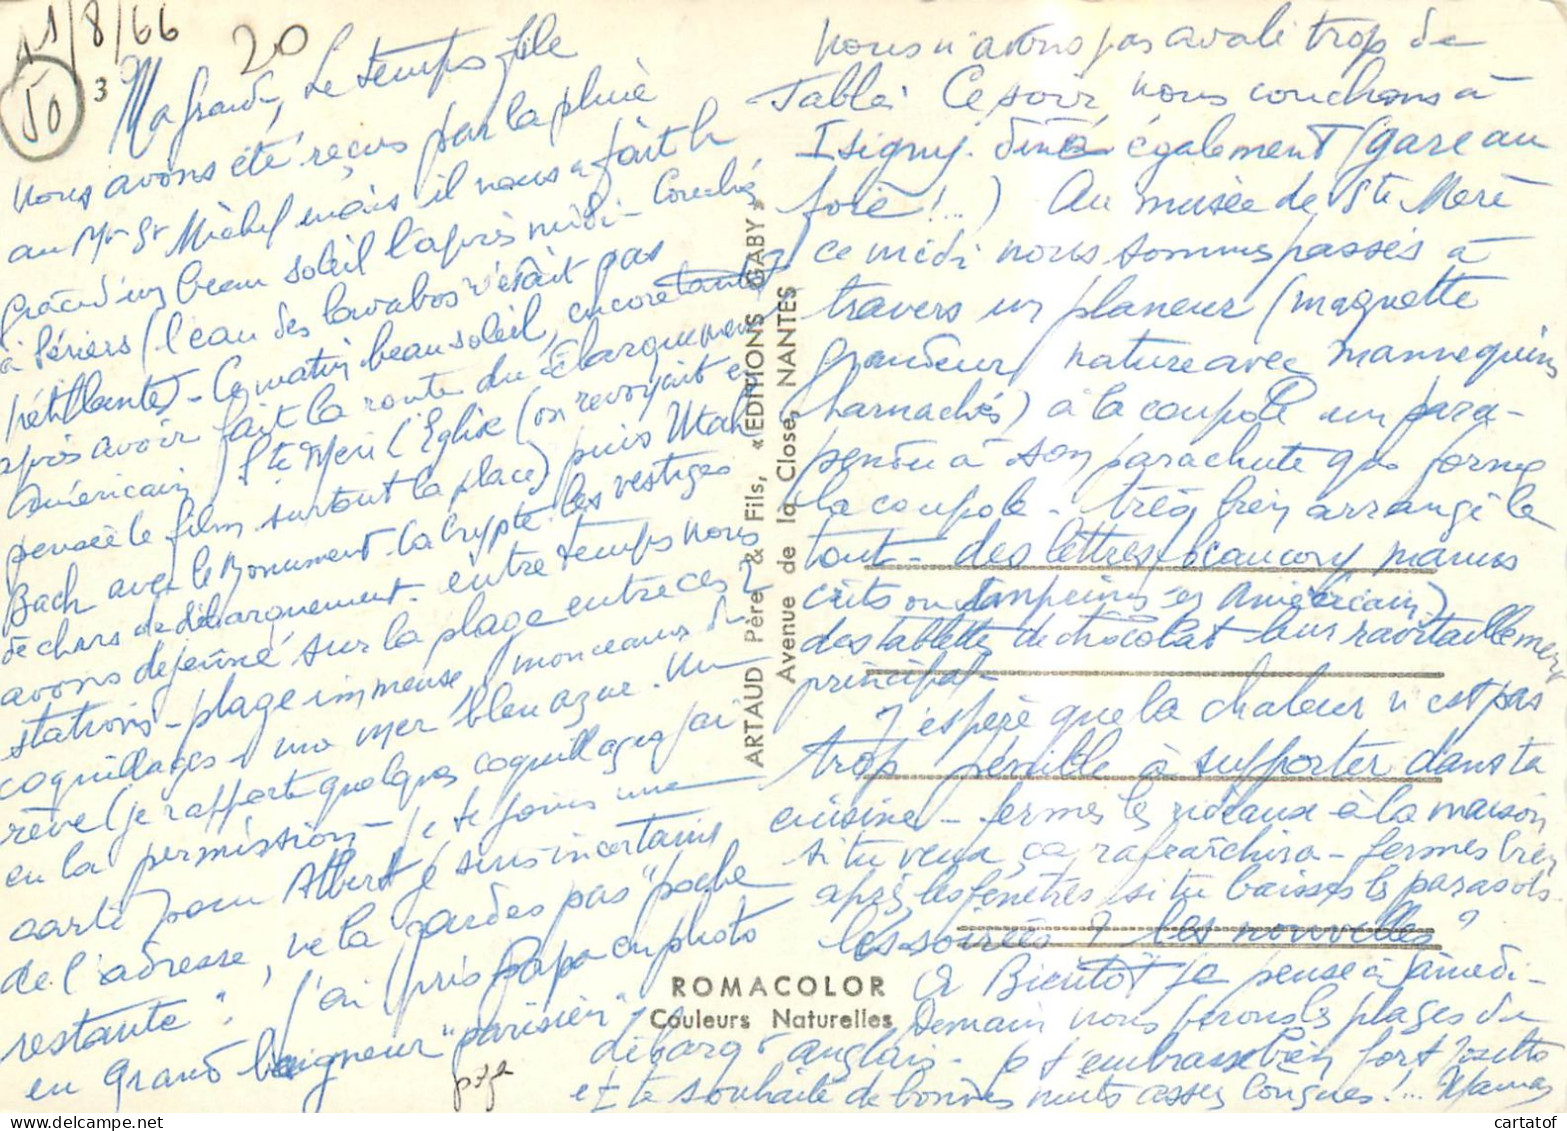 11/8/66
20
50
3
Ma grande, Le temps file
nous avons été reçus par la pluie
au Mt St Michel mais il nous a fait le
grand un beau soleil l'après midi - Couchés
à Périers (l'eau des lavabos n'était pas
pétillante) - Ce matin beau soleil, encore
après avoir fait la route du Débarquement
Américain Ste Mère l'Eglise (on revoyait en
pensée le film surtout la place) puis Utah
Bach avec le Monument - la Crypte - les vestiges
de chars de débarquement - entre temps nous
avons déjeuné sur la plage entre ces 2
stations - plage immense, monceaux de
coquillages - une mer bleu azur. Un
rêve (je rapporte quelques coquillages j'ai
eu la permission - Je te joins une
carte pour Albert je suis incertaine
de l'adresse, ne la gardes pas "poche
restante". J'ai pris Papa en photo
en grand baigneur "parisien"
nous n'avons pas avalé trop de
sable. Ce soir nous couchons à
Isigny. diné également (gare au
foie !...) Au musée de Ste Mère
ce midi nous sommes passés à
travers un planeur (maquette
grandeur nature avec mannequins
harnachés) à la coupole un para-
pendu à son parachute qui forme
la coupole - très bien arrangé le
tout - des lettres beaucoup manus
crits en américain)
des tablettes de chocolat leur ravitaillement
principal -
J'espère que la chaleur n'est pas
trop pénible à supporter dans ta
cuisine - fermes les rideaux à la maison
si tu veux, ça rafraîchira - fermes bien
après les fenêtres, si tu baisses les parasols.
les soirées ? les nouvelles ?
A Bientôt Je pense à Samedi -
Demain nous ferons les plages du
débarqt anglais - Je t'embrasse bien fort
et te souhaite de bonnes nuits assez longues !... Maman
ARTAUD Père & Fils, «EDITIONS GABY»
Avenue de la Close, NANTES
ROMACOLOR
Couleurs Naturelles
cartatof